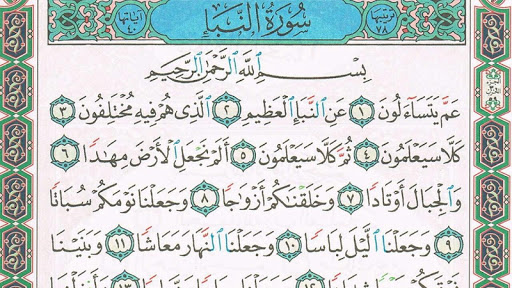 ترتيبها ٧٨ سُورَةُ النَّبَإِ آيَاتُهَا ٤٠
بِسْمِ ٱللَّهِ ٱلرَّحْمَٰنِ ٱلرَّحِيمِ
عَمَّ يَتَسَآءَلُونَ ١ عَنِ ٱلنَّبَإِ ٱلْعَظِيمِ ٢ ٱلَّذِى هُمْ فِيهِ مُخْتَلِفُونَ ٣
كَلَّا سَيَعْلَمُونَ ٤ ثُمَّ كَلَّا سَيَعْلَمُونَ ٥ أَلَمْ نَجْعَلِ ٱلْأَرْضَ مِهَٰدًا ٦
وَٱلْجِبَالَ أَوْتَادًا ٧ وَخَلَقْنَٰكُمْ أَزْوَٰجًا ٨ وَجَعَلْنَا نَوْمَكُمْ سُبَاتًا
٩ وَجَعَلْنَا ٱلَّيْلَ لِبَاسًا ١٠ وَجَعَلْنَا ٱلنَّهَارَ مَعَاشًا ١١ وَبَنَيْنَا